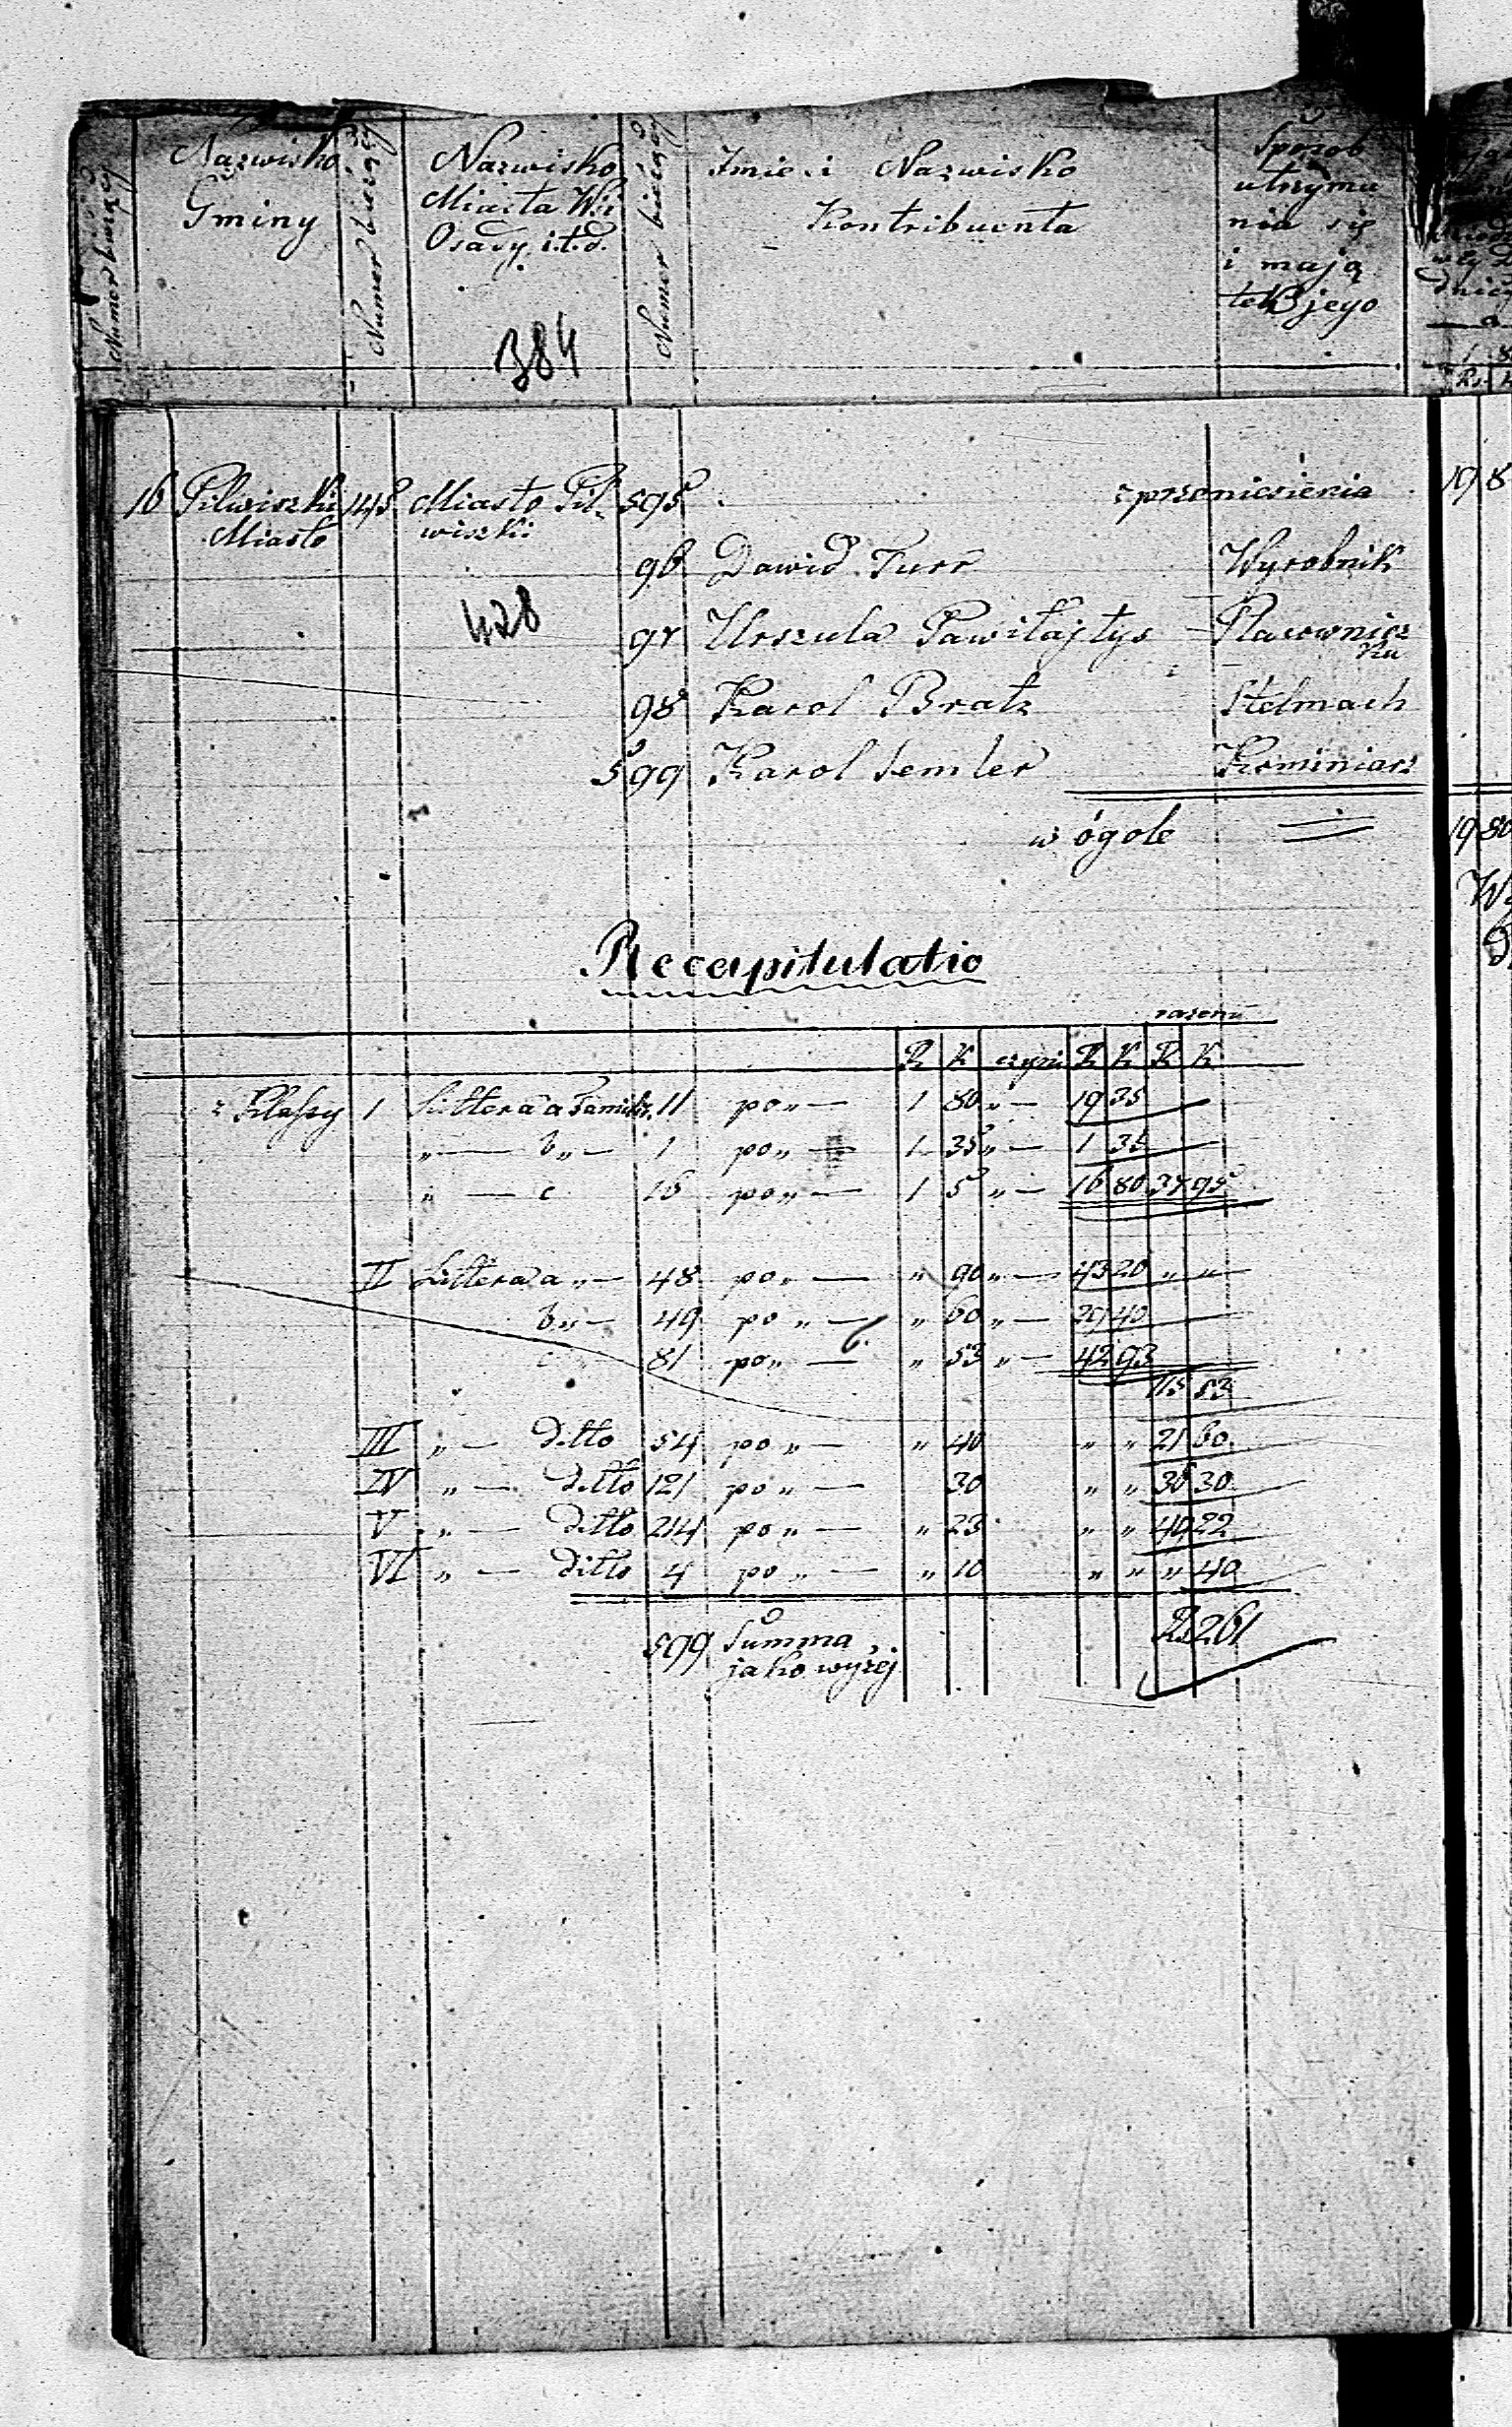 Numer bieżący
Nazwisko
Gminy
Numer bieżący
Nazwisko
Miasta Wsi
Osady i.t.d.
Numer bieżący
Imie i Nazwisko
Kontribuenta
Sposob
utrzyma
nia się
i mają
tek jego
384
16 Pilwiszki 145 Miasto Pil 595 z przeniesienia 19 8
Miasto wiszki
96 Dawid Furr Wyrobnik
428
97 Urszula Pawiłajtys Placownicz
ka
98 Karol Bratz Stelmach
599 Karol Semler Kominiarz
w ogole 19 80
Recapitulatio
razem
R K czyni R K R K
z Klassy 1 Littera a Familii 11 po „ — 1 80 „ — 19 35
„ — b „ — 1 po „ — 1 35 „ — 1 35
„ — c 16 po „ — 1 5 „ — 16 80 37 95
II Littera a „ — 48 po „ — „ 90 „ — 43 20 „ „
b „ — 49 po „ — „ 60 „ — 29 40
c 81 po „ — „ 53 „ — 42 93
115 53
III „ — ditto 54 po „ — „ 40 „ „ 21 60
IV „ — ditto 121 po „ — 30 „ „ 36 30
V „ — ditto 214 po „ — „ 23 „ „ 49 22
VI „ — ditto 4 po „ — „ 10 „ „ „ 40
599 Summa Rs 261
jako wyżej